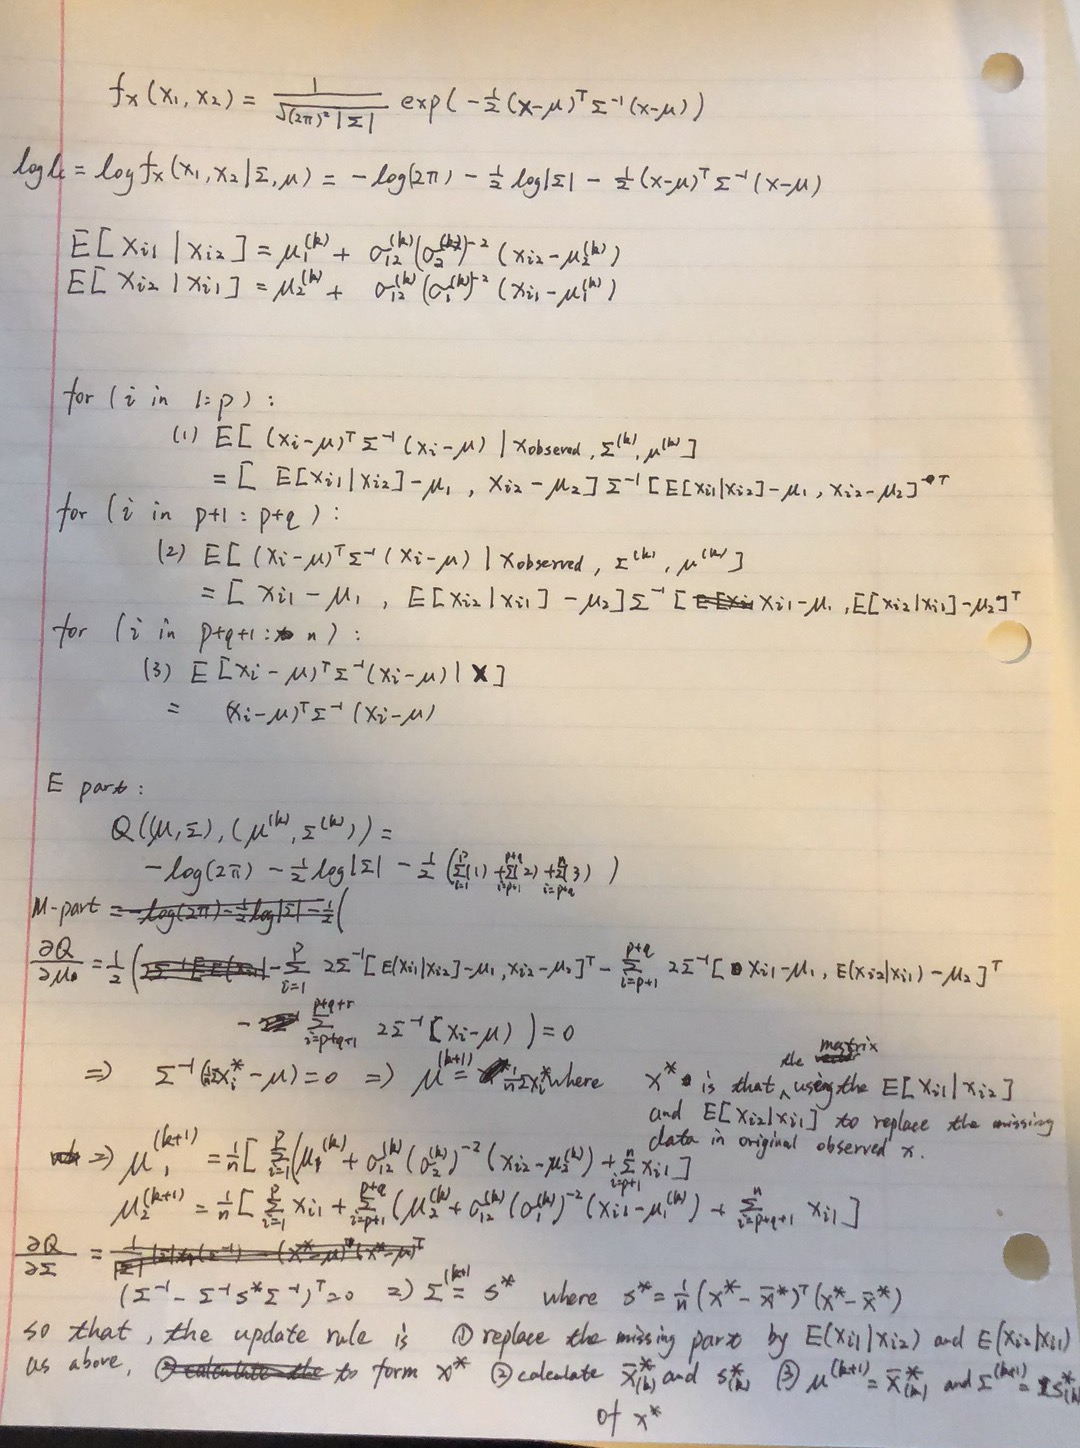 fx(x₁, x₂) = 1/√((2π)²|Σ|) exp(-½(x-μ)ᵀΣ⁻¹(x-μ))
log L = log fx(x₁, x₂|Σ, μ) = -log(2π) - ½ log|Σ| - ½(x-μ)ᵀΣ⁻¹(x-μ)
E[xi1|xi2] = μ₁⁽ᵏ⁾ + σ₁₂⁽ᵏ⁾(σ₂⁽ᵏ⁾)⁻²(xi2-μ₂⁽ᵏ⁾)
E[xi2|xi1] = μ₂⁽ᵏ⁾ + σ₁₂⁽ᵏ⁾(σ₁⁽ᵏ⁾)⁻²(xi1-μ₁⁽ᵏ⁾)
for (i in 1:p):
(1) E[(xi-μ)ᵀΣ⁻¹(xi-μ)|xobserved, Σ⁽ᵏ⁾, μ⁽ᵏ⁾]
= [E[xi1|xi2]-μ₁, xi2-μ₂]Σ⁻¹[E[xi1|xi2]-μ₁, xi2-μ₂]ᵀ
for (i in p+1:p+q):
(2) E[(xi-μ)ᵀΣ⁻¹(xi-μ)|xobserved, Σ⁽ᵏ⁾, μ⁽ᵏ⁾]
= [xi1-μ₁, E[xi2|xi1]-μ₂]Σ⁻¹[xi1-μ₁, E[xi2|xi1]-μ₂]ᵀ
for (i in p+q+1: n):
(3) E[xi-μ)ᵀΣ⁻¹(xi-μ)|X]
= (xi-μ)ᵀΣ⁻¹(xi-μ)
E part:
Q((μ,Σ),(μ⁽ᵏ⁾,Σ⁽ᵏ⁾)) =
-log(2π) - ½ log|Σ| - ½(∑_{i=1}^{p}(1) + ∑_{i=p+1}^{p+q}(2) + ∑_{i=p+q}^{n}(3))
M-part = -log(2π) - ½ log|Σ| - ½(
∂Q/∂μ = ½(-∑_{i=1}^{p} 2Σ⁻¹[E(xi1|xi2]-μ₁, xi2-μ₂]ᵀ - ∑_{i=p+1}^{p+q} 2Σ⁻¹[xi1-μ₁, E(xi2|xi1)-μ₂]ᵀ
- ∑_{i=p+q+1}^{p+q+r} 2Σ⁻¹[xi-μ)) = 0
⇒ Σ⁻¹(1/n Σxi* - μ) = 0 ⇒ μ⁽ᵏ⁺¹⁾ = 1/n Σxi* where x* is that the matrix using the E[xi1|xi2]
and E[xi2|xi1] to replace the missing
data in original observed x.
⇒ μ₁⁽ᵏ⁺¹⁾ = 1/n[∑_{i=1}^{p}(μ₁⁽ᵏ⁾ + σ₁₂⁽ᵏ⁾(σ₂⁽ᵏ⁾)⁻²(xi2-μ₂⁽ᵏ⁾) + ∑_{i=p+1}^{n} xi1]
μ₂⁽ᵏ⁺¹⁾ = 1/n[∑_{i=1}^{p} xi1 + ∑_{i=p+1}^{p+q}(μ₂⁽ᵏ⁾ + σ₁₂⁽ᵏ⁾(σ₁⁽ᵏ⁾)⁻²(xi1-μ₁⁽ᵏ⁾) + ∑_{i=p+q+1}^{n} xi1]
∂Q/∂Σ =
(Σ⁻¹ - Σ⁻¹s*Σ⁻¹)ᵀ = 0 ⇒ Σ⁽ᵏ⁺¹⁾ = s* where s* = 1/n(x*-x̄*)ᵀ(x*-x̄*)
so that, the update rule is ① replace the missing part by E(xi1|xi2) and E(xi2|xi1)
as above, to form x* ② calculate x̄*₍ₖ₎ and s*₍ₖ₎ ③ μ⁽ᵏ⁺¹⁾ = x̄*₍ₖ₎ and Σ⁽ᵏ⁺¹⁾ = s*₍ₖ₎
of x*